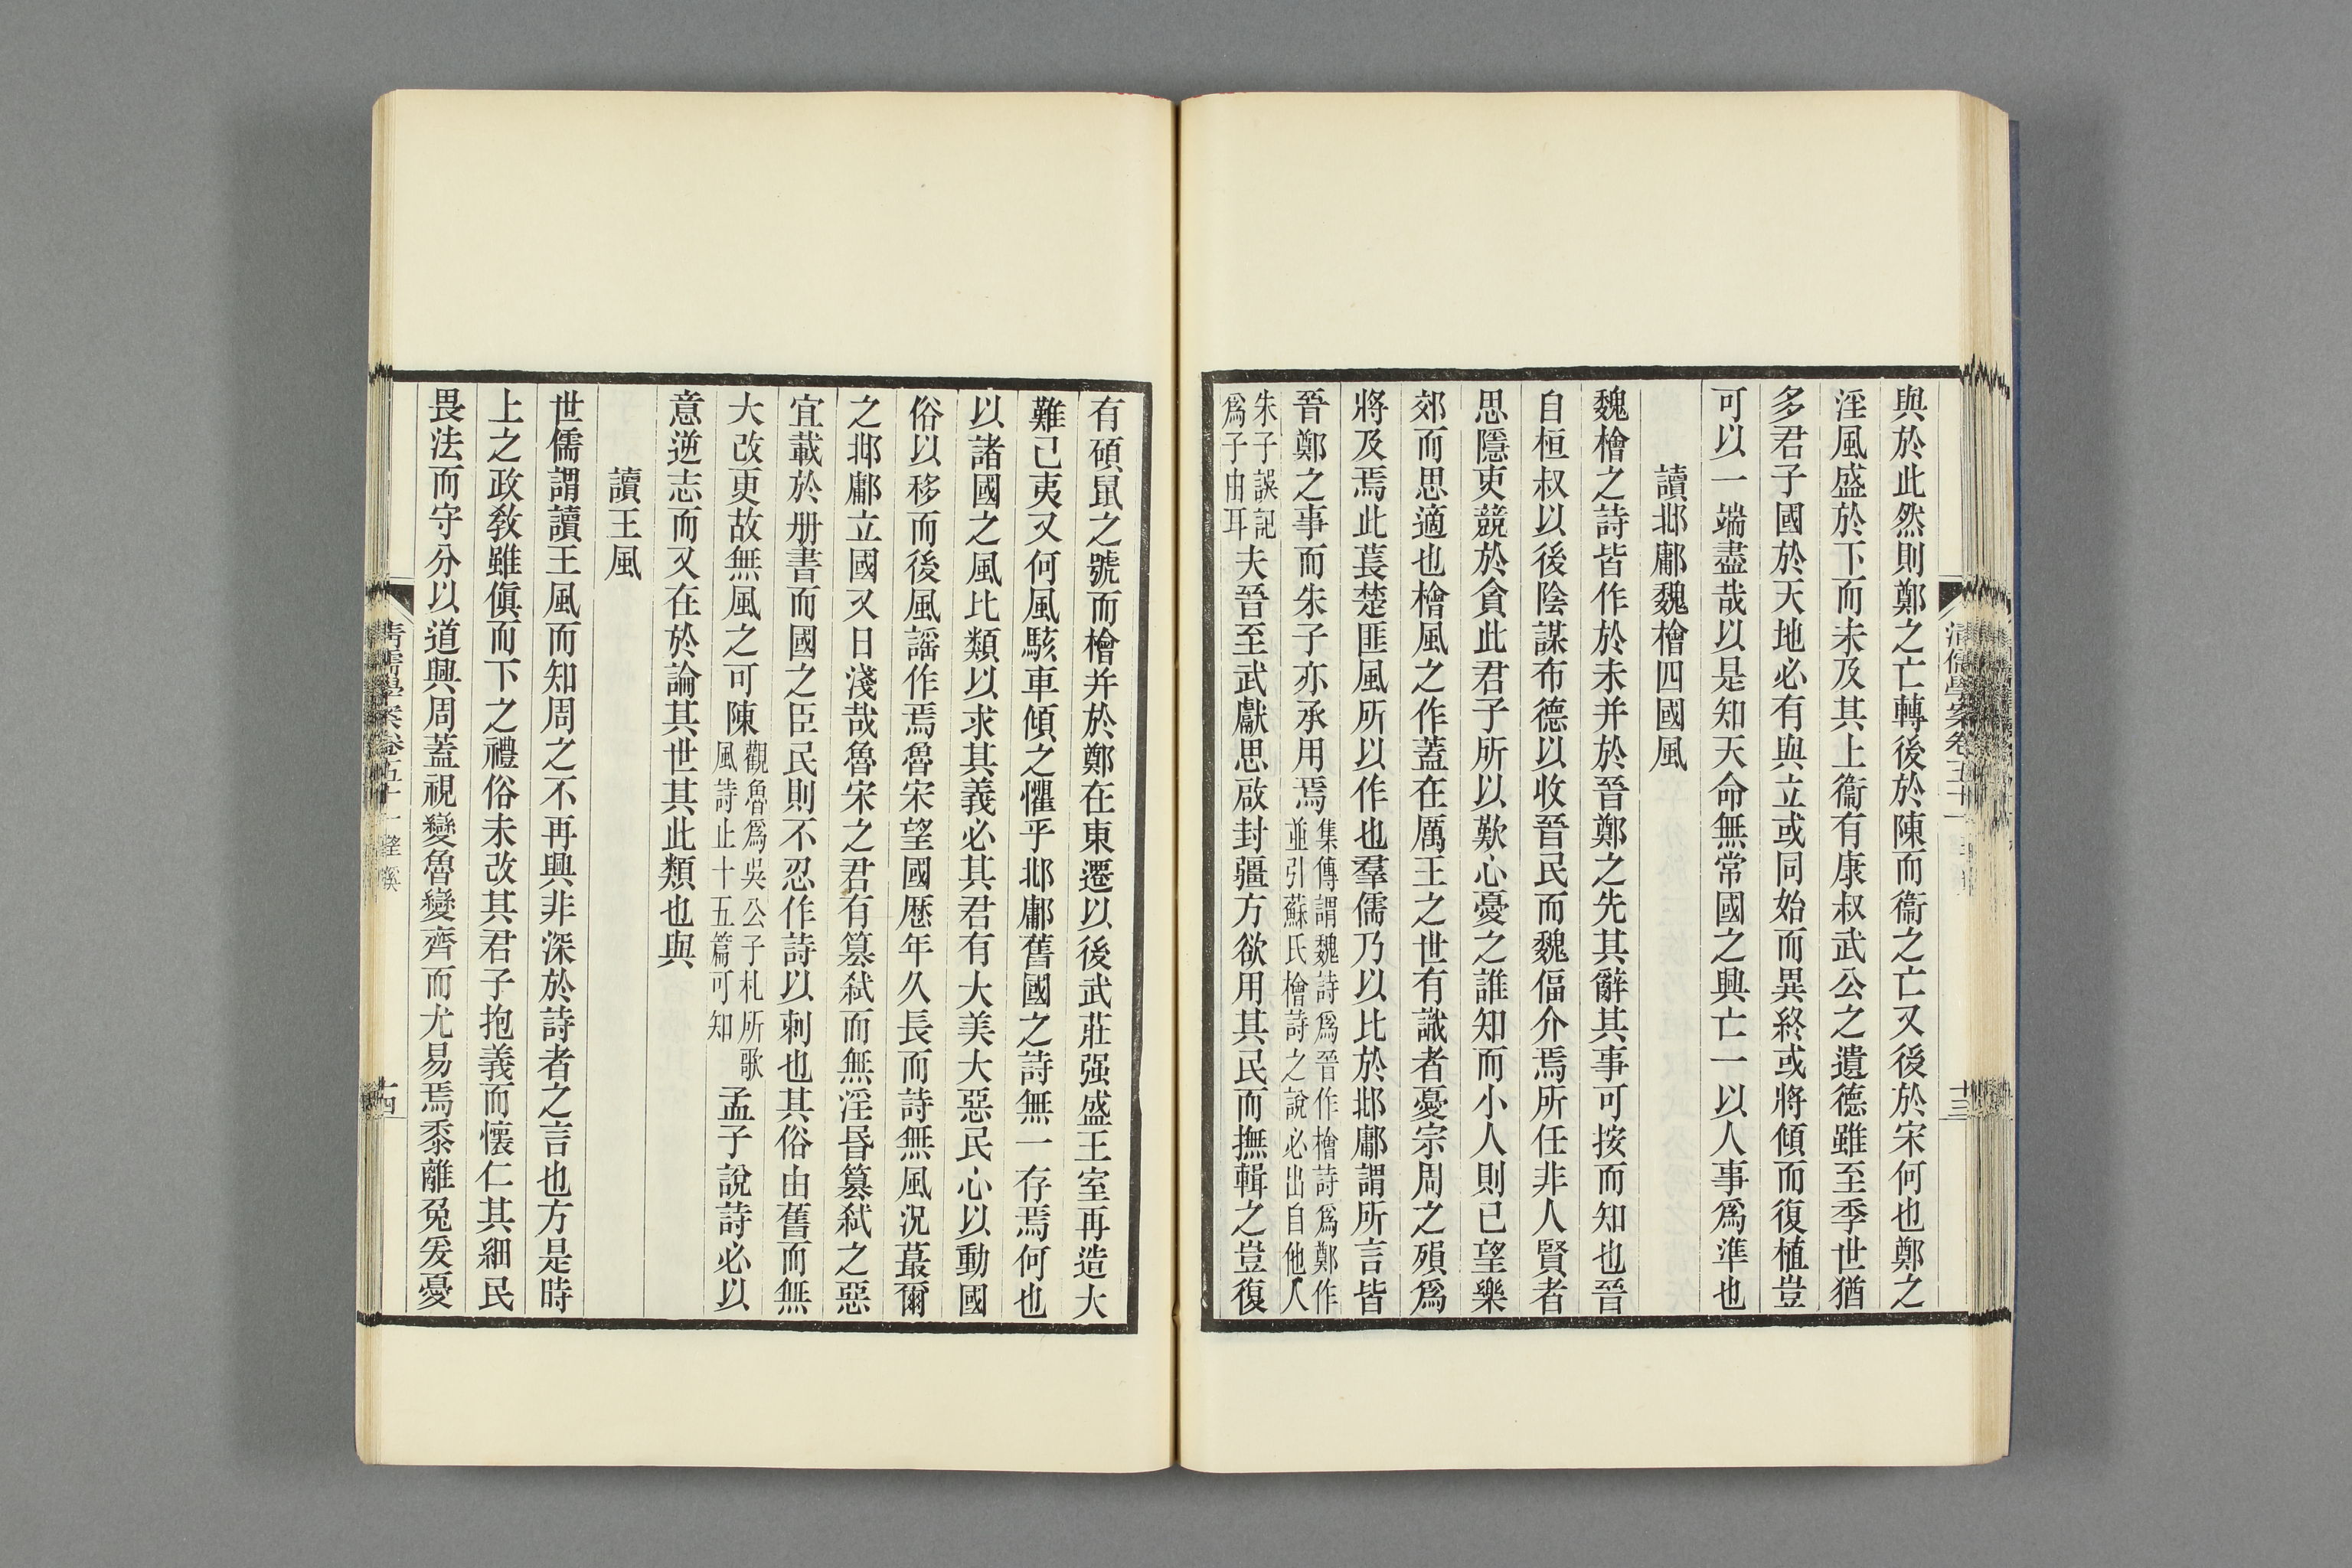 清儒學案卷五十一
十三
與於此然則鄭之亡轉後於陳而衞之亡又後於宋何也鄭之
淫風盛於下而未及其上衞有康叔武公之遺德雖至季世猶
多君子國於天地必有與立或同始而異終或將傾而復植豈
可以一端盡哉以是知天命無常國之興亡一以人事爲準也
讀邶鄘魏檜四國風
魏檜之詩皆作於未并於晉鄭之先其辭其事可按而知也晉
自桓叔以後陰謀布德以收晉民而魏偪介焉所任非人賢者
思隱吏競於貪此君子所以歎心憂之誰知而小人則已望樂
郊而思適也檜風之作蓋在厲王之世有識者憂宗周之殞爲
將及焉此萇楚匪風所以作也羣儒乃以比於邶鄘謂所言皆
晉鄭之事而朱子亦承用焉集傳謂魏詩爲晉作檜詩爲鄭作
並引蘇氏檜詩之說必出自他人
朱子誤記
爲子由耳夫晉至武獻思啟封疆方欲用其民而撫輯之豈復
有碩鼠之號而檜并於鄭在東遷以後武莊强盛王室再造大
難已夷又何風駭車傾之懼乎邶鄘舊國之詩無一存焉何也
以諸國之風比類以求其義必其君有大美大惡民心以動國
俗以移而後風謠作焉魯宋望國歷年久長而詩無風況蕞爾
之邶鄘立國又日淺哉魯宋之君有篡弑而無淫昬篡弑之惡
宜載於册書而國之臣民則不忍作詩以刺也其俗由舊而無
大改更故無風之可陳觀魯爲吳公子札所歌
風詩止十五篇可知孟子說詩必以
意逆志而又在於論其世其此類也與
讀王風
世儒謂讀王風而知周之不再興非深於詩者之言也方是時
上之政敎雖傎而下之禮俗未改其君子抱義而懷仁其細民
畏法而守分以道興周蓋視變魯變齊而尤易焉黍離兔爰憂
清儒學案卷五十一 望溪
十四